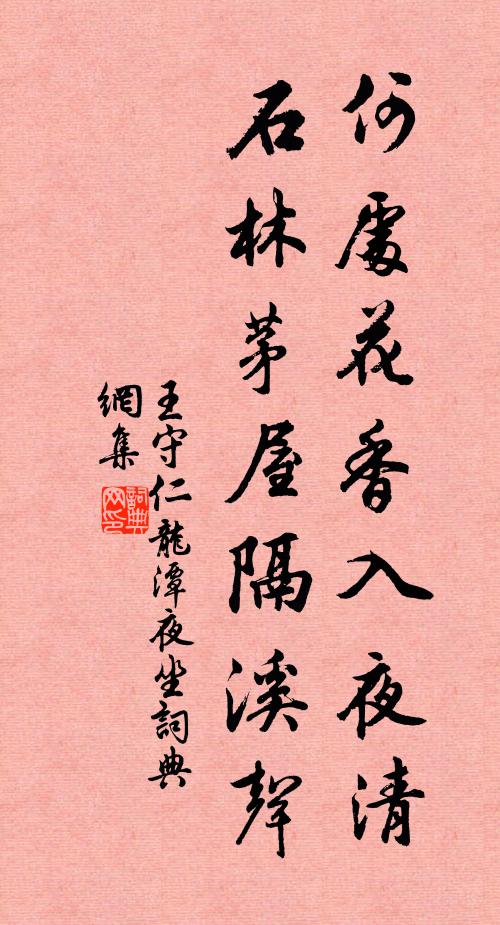 何處花香入夜清
石林茅屋隔溪聲
王守仁龍潭夜坐詞典
網集
詞典網印